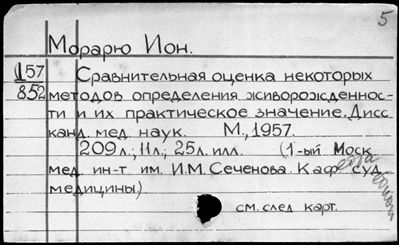 5
Морарю Ион.
157 Сравнительная оценка некоторых
852 методов определения живорожденнос-
ти и их практическое значение. Дисс
канд. мед наук. М., 1957.
209л.; 11л.; 25л. илл. (1-ый Моск
мед. ин-т им. И.М. Сеченова. Каф суд
медицины)
см. след карт.